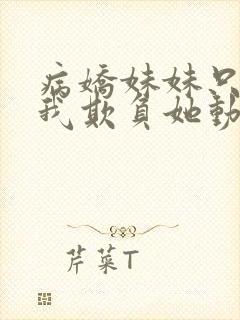 病嬌妹妹只
我欺負她動
芹菜T